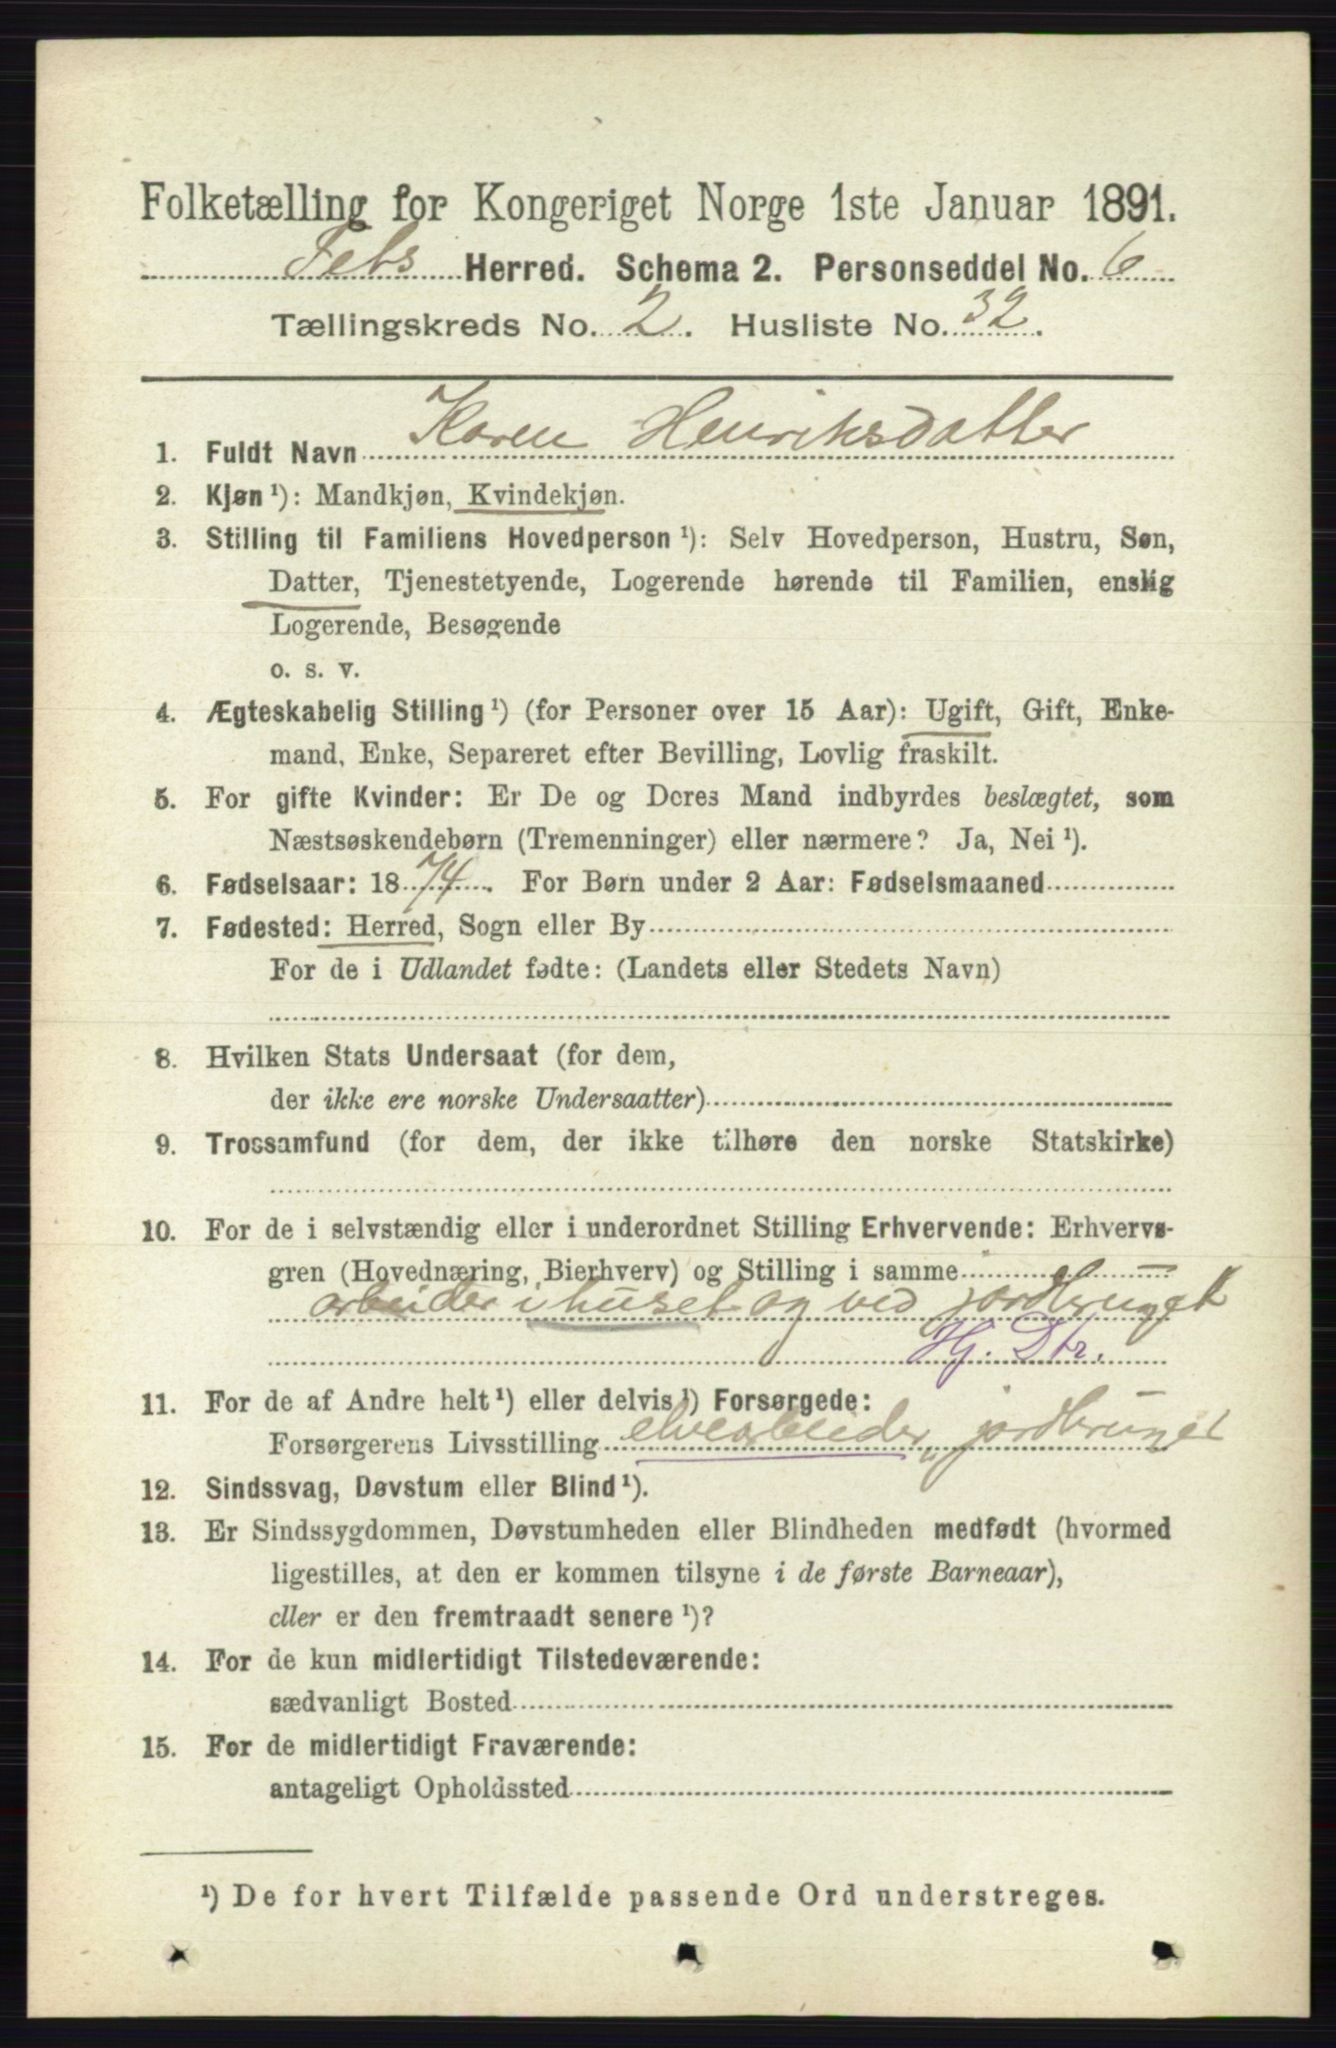 Folketælling for Kongeriget Norge 1ste Januar 1891.
Fets Herred. Schema 2. Personseddel No. 6
Tællingskreds No. 2. Husliste No. 32.
1. Fuldt Navn Karen Henriksdatter
2. Kjøn ¹): Mandkjøn, Kvindekjøn.
3. Stilling til Familiens Hovedperson ¹): Selv Hovedperson, Hustru, Søn,
Datter, Tjenestetyende, Logerende hørende til Familien, enslig
Logerende, Besøgende
o. s. v.
4. Ægteskabelig Stilling ¹) (for Personer over 15 Aar): Ugift, Gift, Enke-
mand, Enke, Separeret efter Bevilling, Lovlig fraskilt.
5. For gifte Kvinder: Er De og Deres Mand indbyrdes beslægtet, som
Næstsøskendebørn (Tremenninger) eller nærmere? Ja, Nei ¹).
6. Fødselsaar: 1874. For Børn under 2 Aar: Fødselsmaaned
7. Fødested: Herred, Sogn eller By
For de i Udlandet fødte: (Landets eller Stedets Navn)
8. Hvilken Stats Undersaat (for dem,
der ikke ere norske Undersaatter)
9. Trossamfund (for dem, der ikke tilhøre den norske Statskirke)
10. For de i selvstændig eller i underordnet Stilling Erhvervende: Erhvervs-
gren (Hovednæring, Bierhverv) og Stilling i samme
arbeider i huset og ved jordbruget
Hj. Dtr.
11. For de af Andre helt ¹) eller delvis ¹) Forsørgede:
Forsørgerens Livsstilling elvearbeider, jordbruget
12. Sindssvag, Døvstum eller Blind ¹).
13. Er Sindssygdommen, Døvstumheden eller Blindheden medfødt (hvormed
ligestilles, at den er kommen tilsyne i de første Barneaar),
eller er den fremtraadt senere ¹)?
14. For de kun midlertidigt Tilstedeværende:
sædvanligt Bosted
15. For de midlertidigt Fraværende:
antageligt Opholdssted
¹) De for hvert Tilfælde passende Ord understreges.